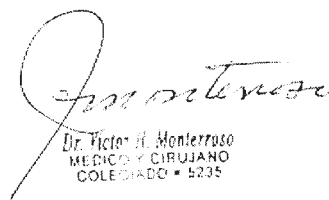 Monterroso
Dr. Victor H. Monterroso
MEDICO Y CIRUJANO
COLEGIADO 5235